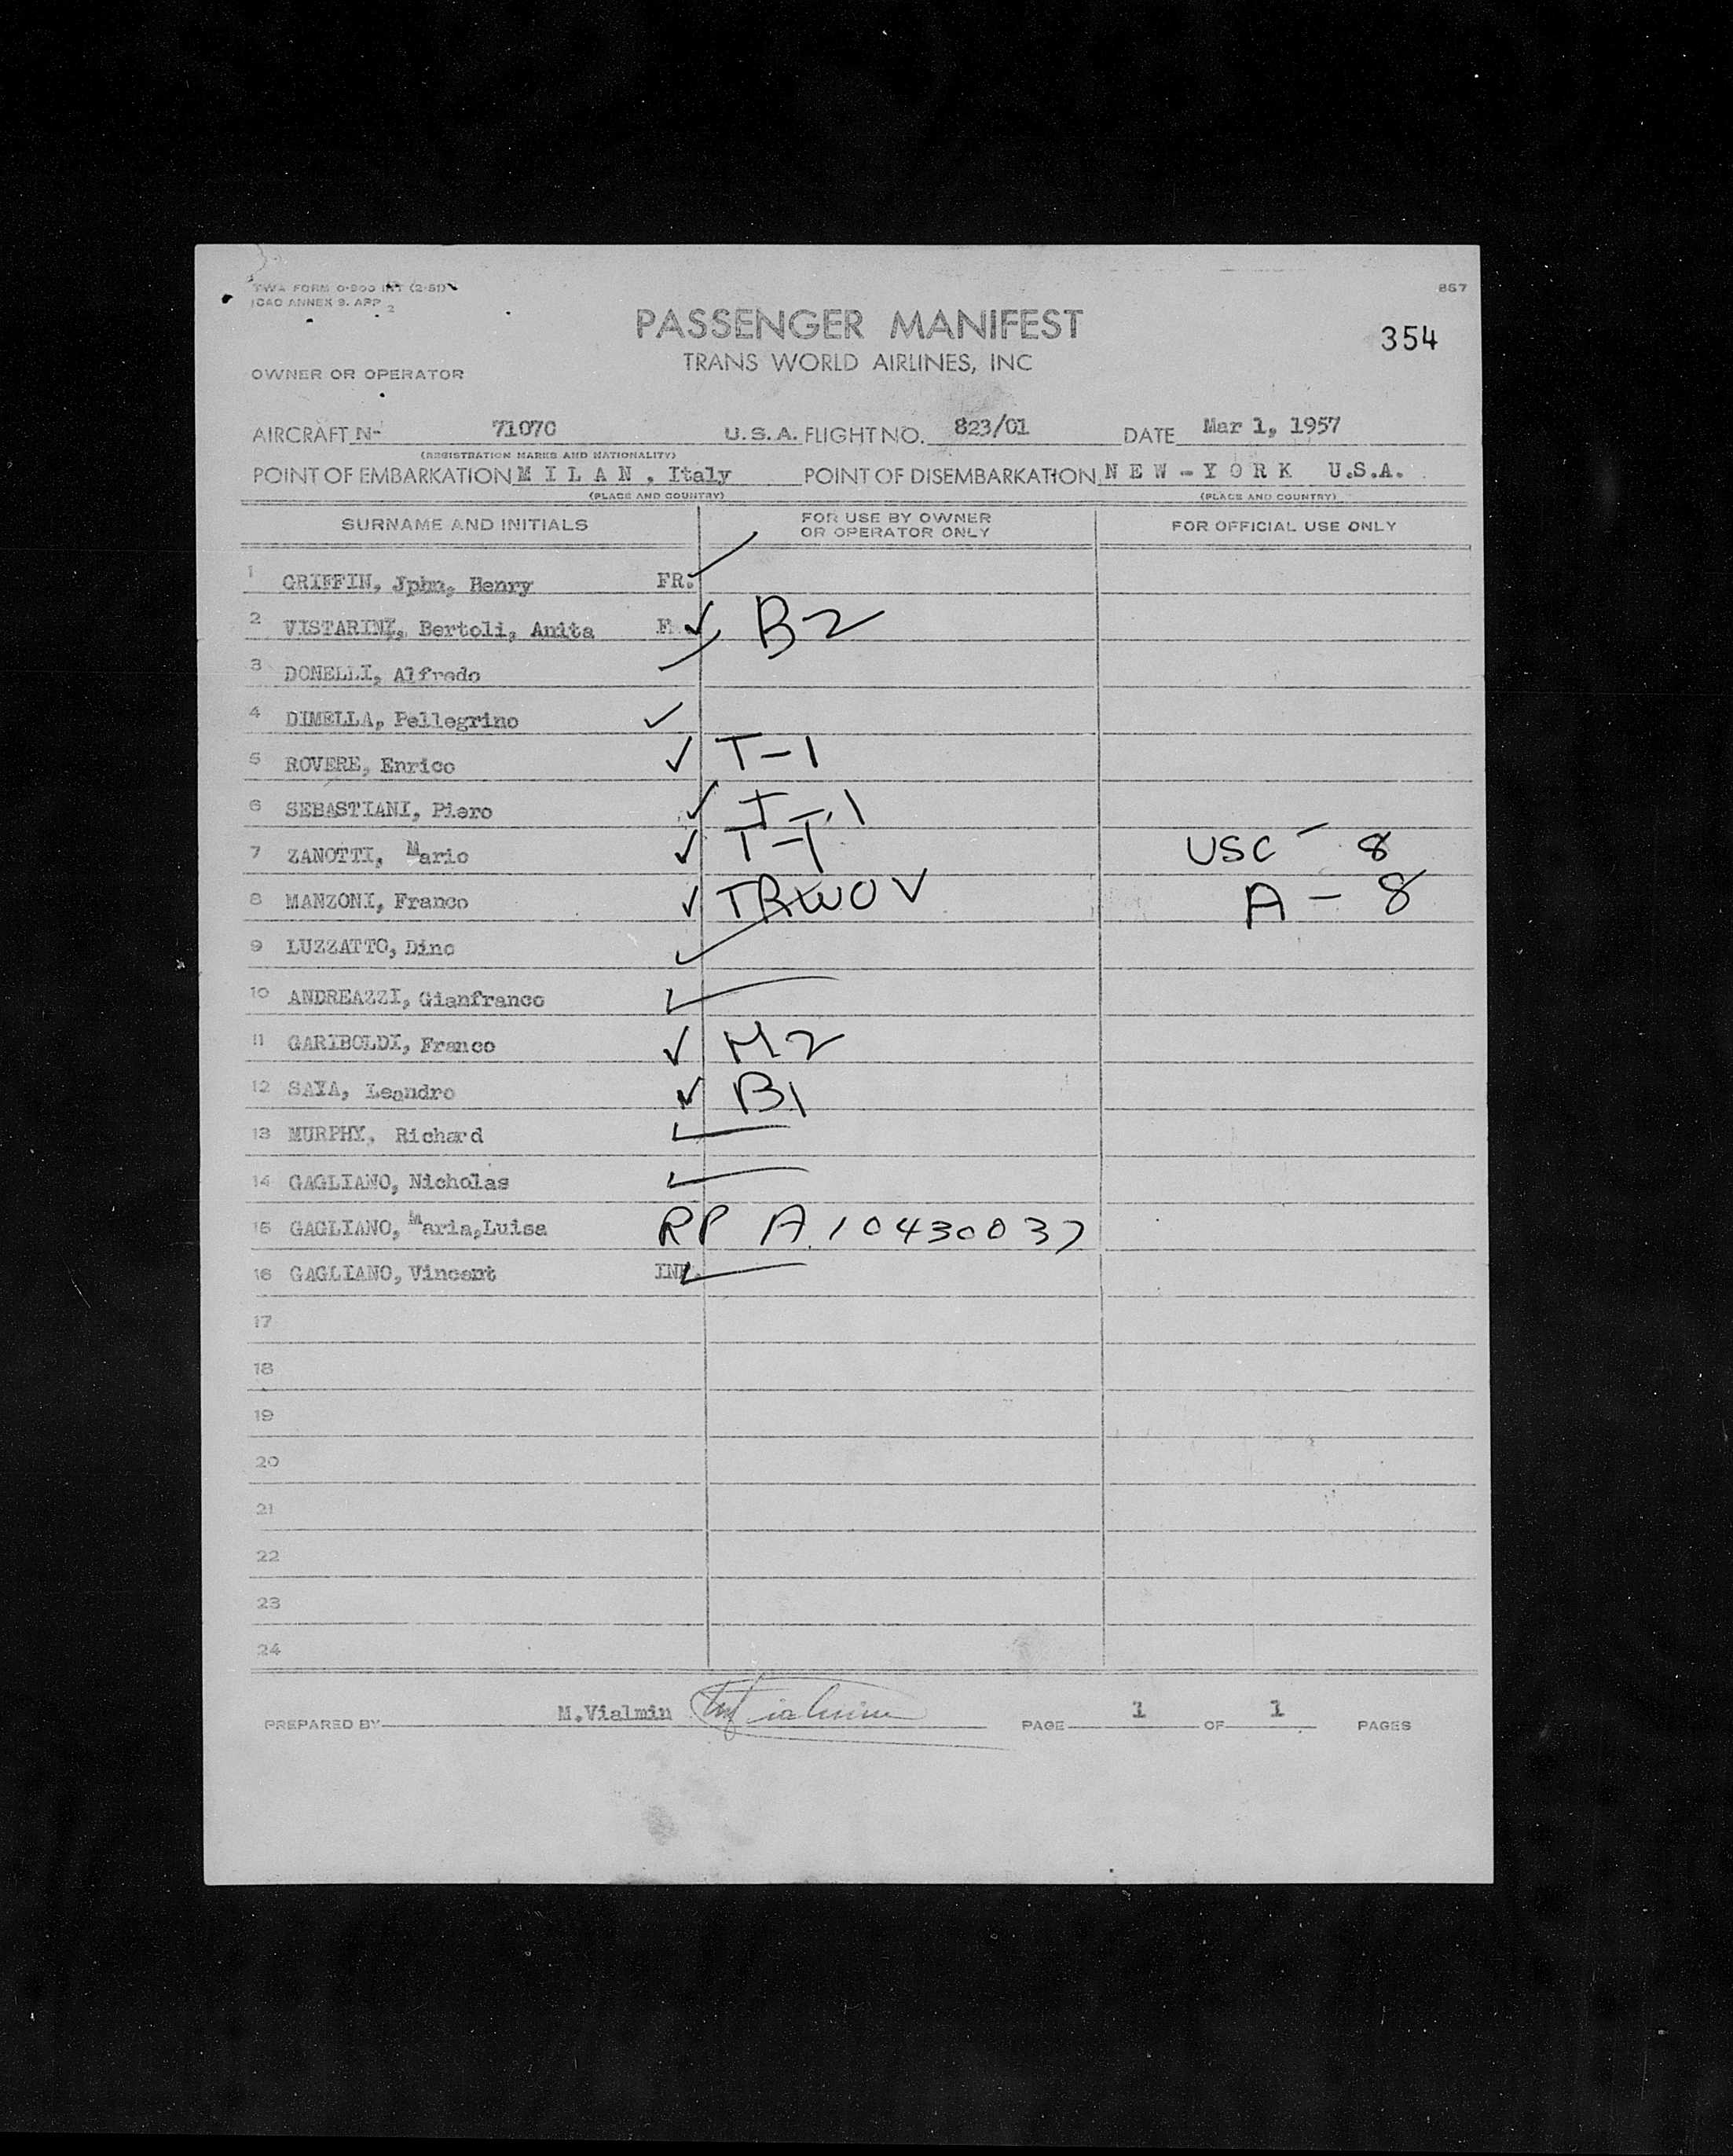 TWA FORM 0-900 INT (2-51)
ICAO ANNEX 9. APP 2
867
PASSENGER MANIFEST
354
TRANS WORLD AIRLINES, INC
OWNER OR OPERATOR
AIRCRAFT N- 7107C U.S.A. FLIGHT NO. 823/01 DATE Mar 1, 1957
(REGISTRATION MARKS AND NATIONALITY)
POINT OF EMBARKATION M I L A N , Italy POINT OF DISEMBARKATION N E W - Y O R K U.S.A.
(PLACE AND COUNTRY) (PLACE AND COUNTRY)
SURNAME AND INITIALS FOR USE BY OWNER OR OPERATOR ONLY FOR OFFICIAL USE ONLY
1 GRIFFIN, Jphn, Henry FR. ✓
2 VISTARINI, Bertoli, Anita F ✓ B2
3 DONELLI, Alfredo ✓
4 DIMELLA, Pellegrino ✓
5 ROVERE, Enrico ✓ T-1
6 SEBASTIANI, Piero ✓ T-1
7 ZANOTTI, Mario ✓ T-1 USC - 8
8 MANZONI, Franco ✓ TRWOV A - 8
9 LUZZATTO, Dino ✓
10 ANDREAZZI, Gianfranco ✓
11 GARIBOLDI, Franco ✓ M2
12 SAYA, Leandro ✓ B1
13 MURPHY, Richard ✓
14 GAGLIANO, Nicholas ✓
15 GAGLIANO, Maria,Luisa RP A 10430037
16 GAGLIANO, Vincent INF. ✓
17
18
19
20
21
22
23
24
PREPARED BY M.Vialmin MVialmin PAGE 1 OF 1 PAGES